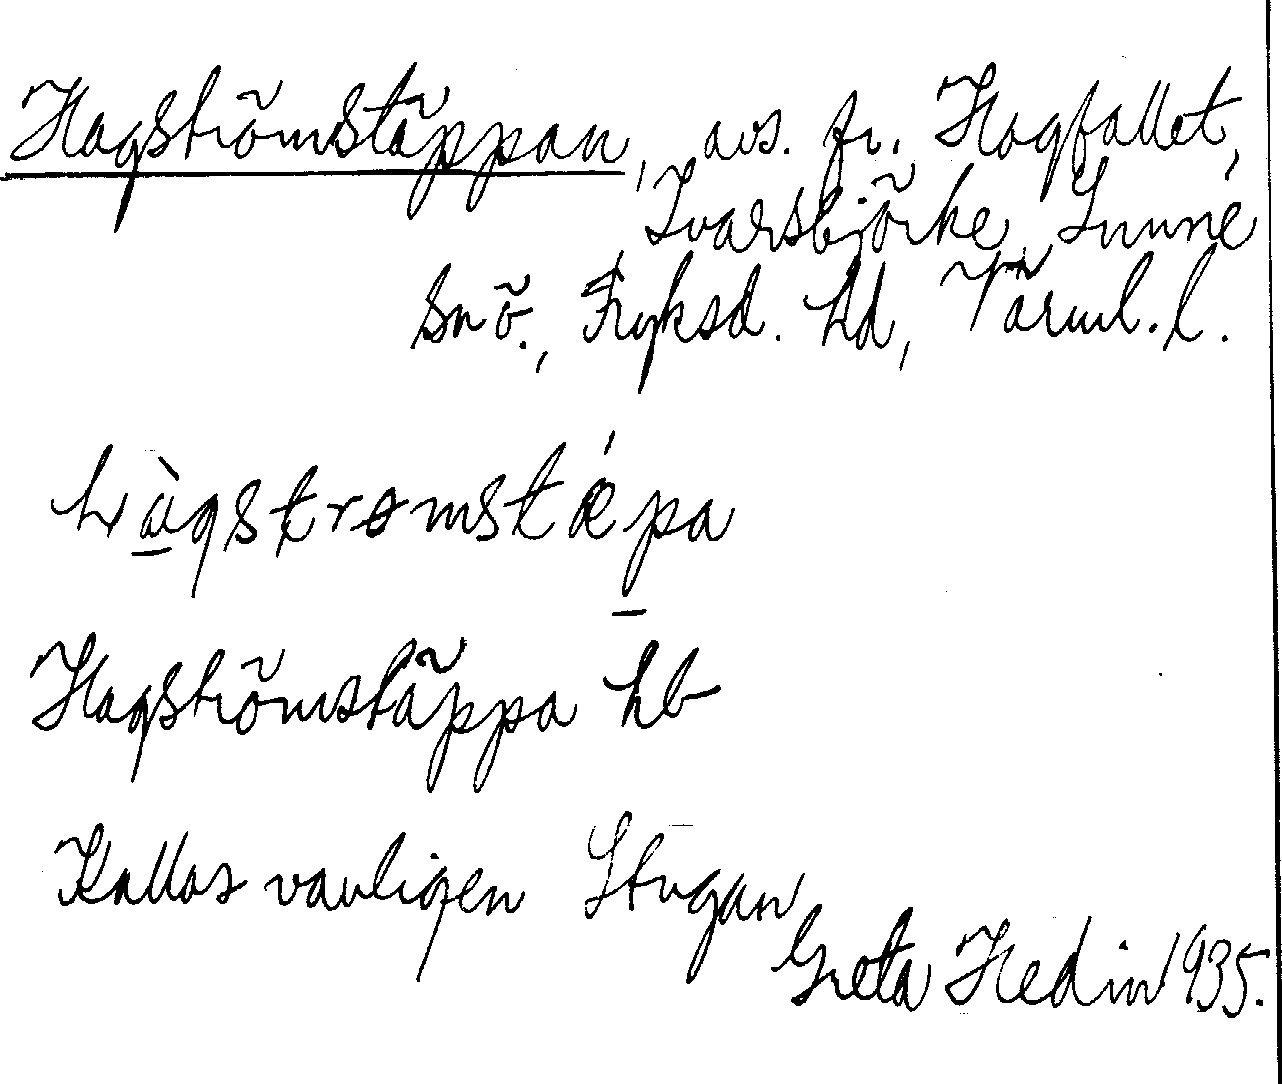 Hagströmstäppan, avs. fr. Hagfallet,
Ivarsbjörke, Sunne
sn ö., Fryksd. hd, Värml. l.
hàgstrømstǽpa
Hagströmstäppa hb
Kallas vanligen Stugan
Greta Hedin 1935.